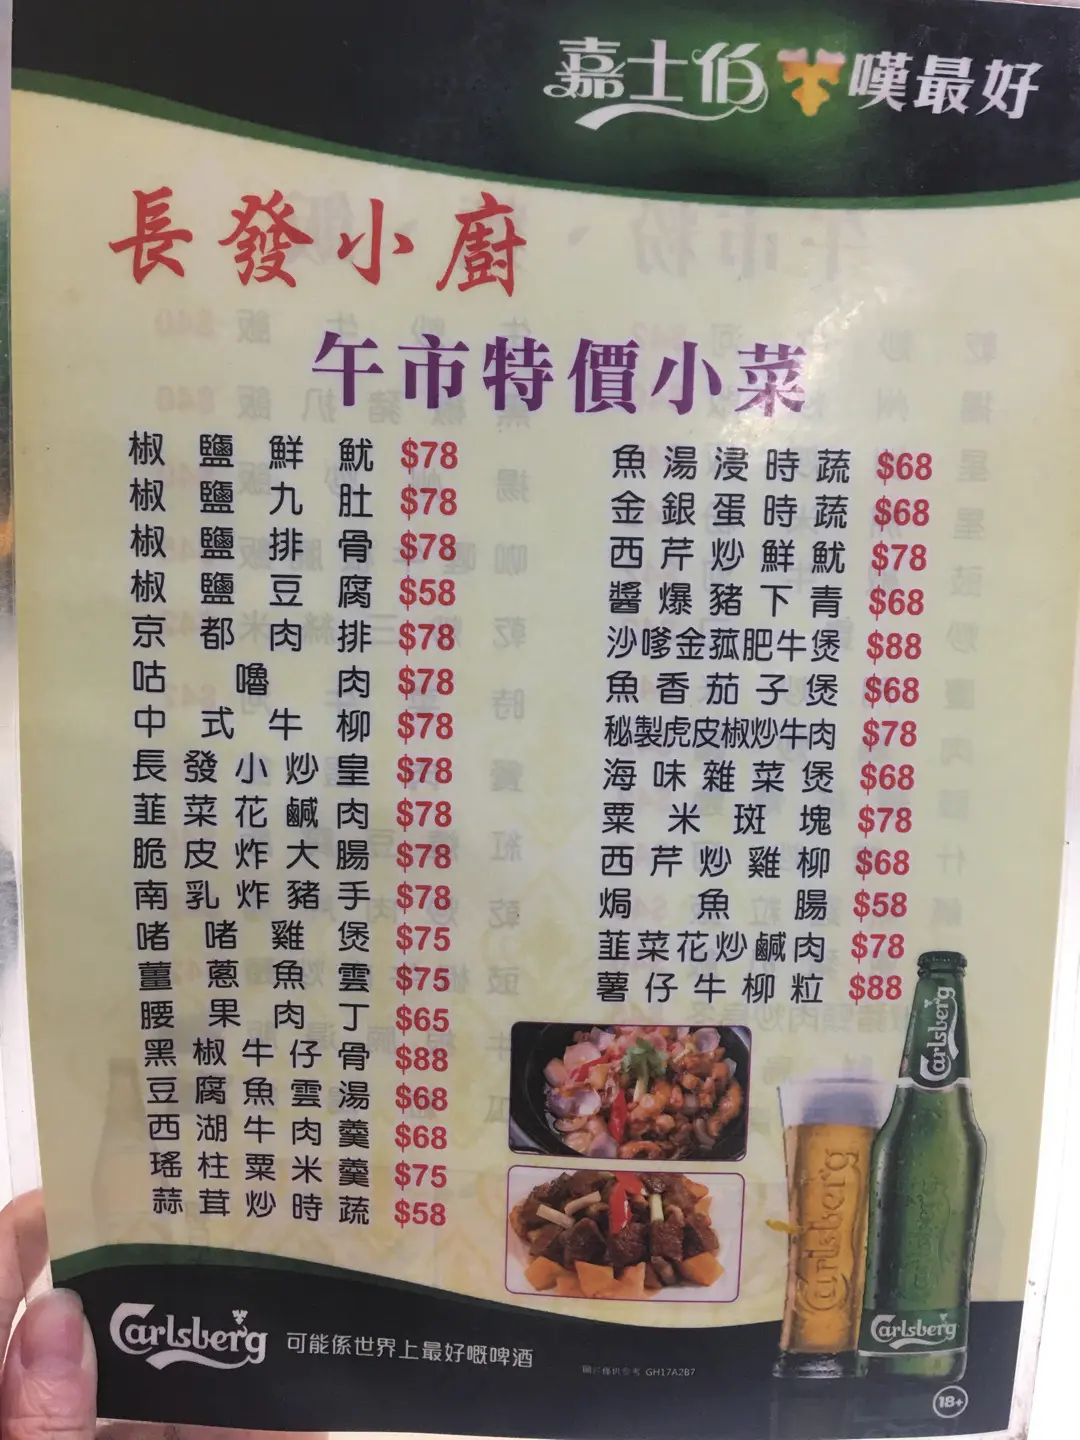 嘉士伯 嘆最好
長發小廚
午市特價小菜
椒鹽鮮魷 $78
椒鹽九肚 $78
椒鹽排骨 $78
椒鹽豆腐 $58
京都肉排 $78
咕嚕肉 $78
中式牛柳 $78
長發小炒皇 $78
韮菜花鹹肉 $78
脆皮炸大腸 $78
南乳炸豬手 $78
啫啫雞煲 $75
薑蔥魚雲 $75
腰果肉丁 $65
黑椒牛仔骨 $88
豆腐魚雲湯 $68
西湖牛肉羹 $68
瑤柱粟米羹 $75
蒜茸炒時蔬 $58
魚湯浸時蔬 $68
金銀蛋時蔬 $68
西芹炒鮮魷 $78
醬爆豬下青 $68
沙嗲金菰肥牛煲 $88
魚香茄子煲 $68
秘製虎皮椒炒牛肉 $78
海味雜菜煲 $68
粟米斑塊 $78
西芹炒雞柳 $68
焗魚腸 $58
韮菜花炒鹹肉 $78
薯仔牛柳粒 $88
Carlsberg
Carlsberg
Carlsberg
Carlsberg 可能係世界上最好嘅啤酒
圖片僅供參考 GH17A2B7
18+